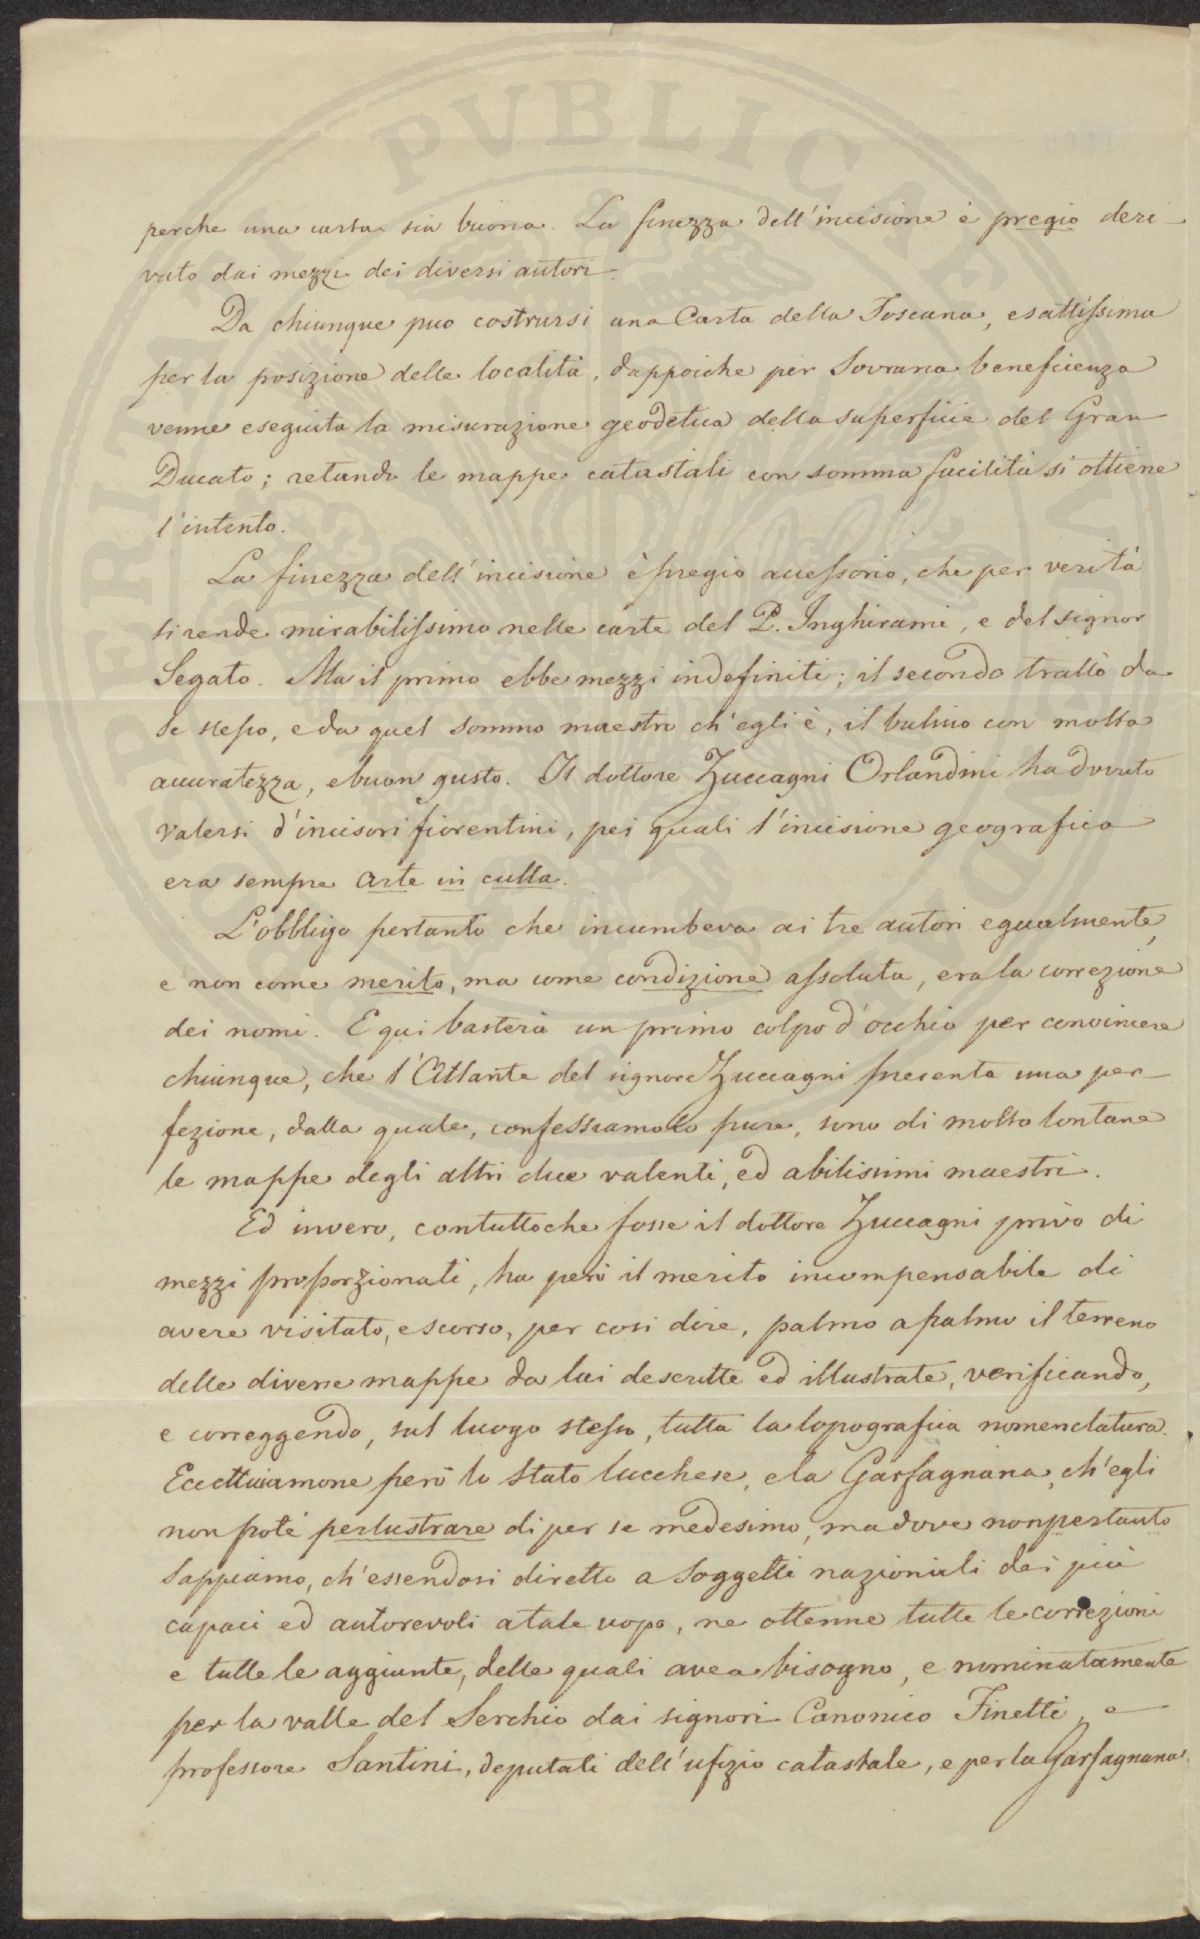 PVBLICAE
VERITATI
perche una carta sia buona. La finezza dell'incisione è pregio deri-
vato dai mezzi dei diversi autori.
Da chiunque puo costrursi una Carta della Toscana, esattissima
per la posizione delle località, dappoiche per Sovrana beneficienza
venne eseguita la misurazione geodetica della superficie del Gran
Ducato; retando le mappe catastali con somma facilità si ottiene
l'intento.
La finezza dell'incisione è pregio accessorio, che per verità
si rende mirabilissimo nelle carte del P. Inghirami, e del signor
Segato. Ma il primo ebbe mezzi indefiniti; il secondo trattò da
se stesso, e da quel sommo maestro ch'egli è, il bulino con molta
accuratezza, e buon gusto. Il dottore Zuccagni Orlandini ha dovuto
valersi d'incisori fiorentini, pei quali l'incisione geografica
era sempre arte in culla.
L'obbligo pertanto che incumbeva ai tre autori egualmente,
e non come merito, ma come condizione assoluta, era la correzione
dei nomi. E qui basterà un primo colpo d'occhio per convincere
chiunque, che l'Atlante del signore Zuccagni presenta una per-
fezione, dalla quale, confessiamolo pure, sono di molto lontane
le mappe degli altri due valenti, ed abilissimi maestri.
Ed invero, contuttoche fosse il dottore Zuccagni privo di
mezzi proporzionati, ha però il merito incompensabile di
avere visitato, e scorso, per cosi dire, palmo a palmo il terreno
delle diverse mappe da lui descritte ed illustrate, verificando,
e correggendo, sul luogo stesso, tutta la topografica nomenclatura.
Eccettuiamone però lo Stato lucchese, e la Garfagnana, ch'egli
non potè perlustrare di per se medesimo, ma dove nonpertanto
sappiamo, ch'essendosi diretto a soggetti nazionali dei più
capaci ed autorevoli a tale uopo, ne ottenne tutte le correzioni
e tutte le aggiunte, delle quali avea bisogno, e nominatamente
per la valle del Serchio dai signori Canonico Finetti, e
professore Santini, deputati dell'ufizio catastale, e per la Garfagnana